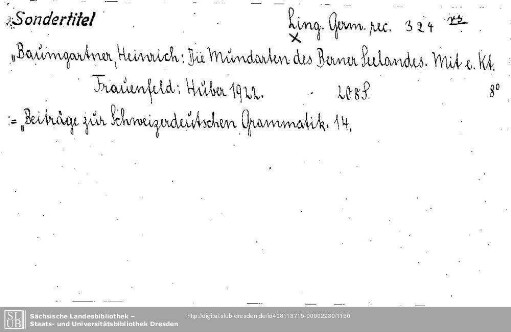 Sondertitel
Ling. Germ. rec. 324
„Baumgartner, Heinrich: Die Mundarten des Berner Seelandes. Mit e. Kt.
Frauenfeld: Huber 1922. 208 S. 8°
= „Beiträge zur Schweizerdeutschen Grammatik. 14.
Sächsische Landesbibliothek –
Staats- und Universitätsbibliothek Dresden